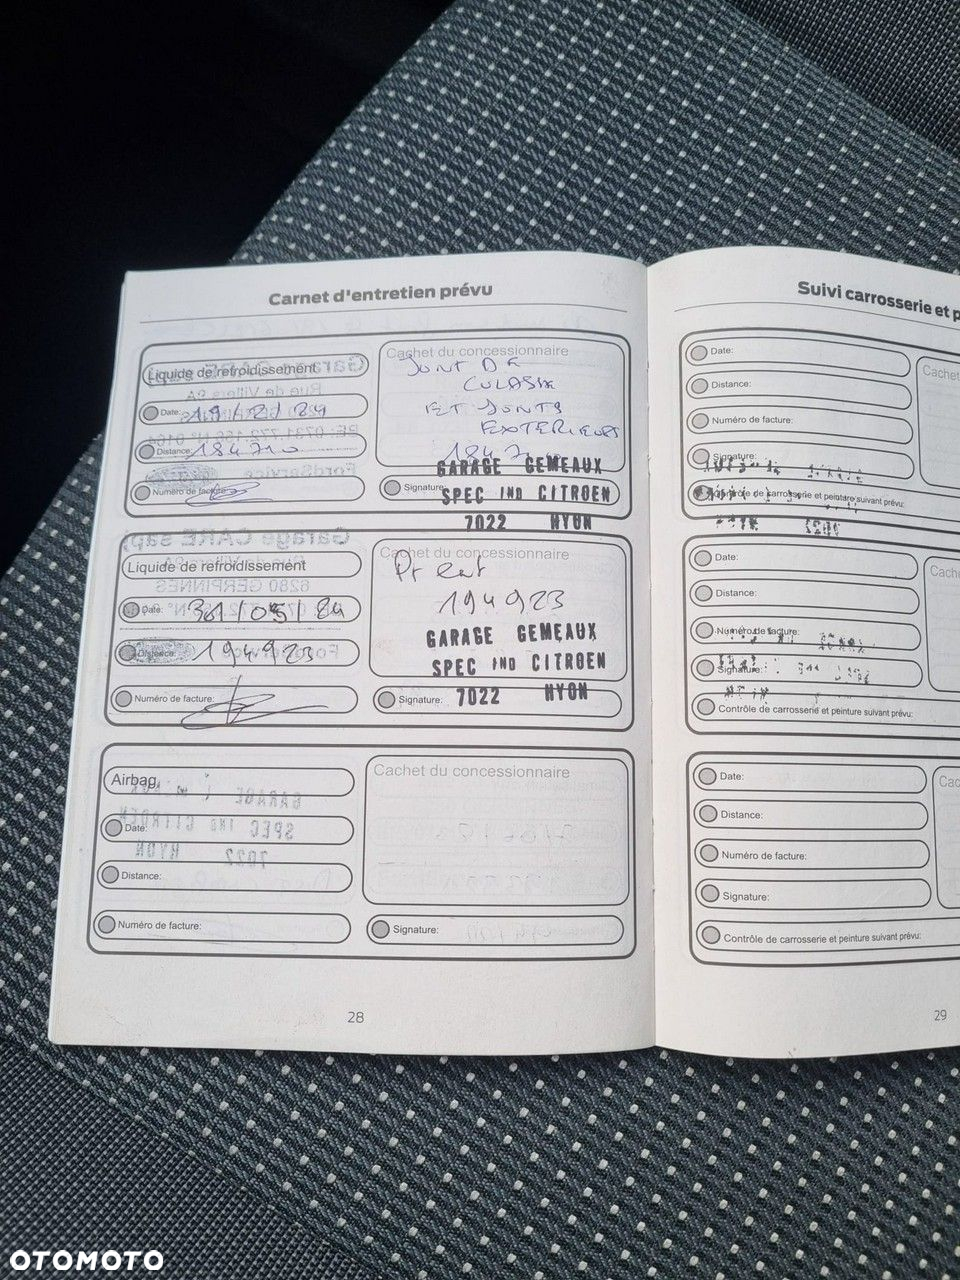 Carnet d'entretien prévu
Liquide de refroidissement
Date: 19/2/24
Distance: 184710
Numéro de facture:
Cachet du concessionnaire
JOINT DE
CULASSE
ET JOINTS
EXTERIEURS
GARAGE GEMEAUX
Signature:
SPEC IND CITROEN
7022 HYON
Liquide de refroidissement
Date: 31/05/24
Distance: 194923
Numéro de facture:
Cachet du concessionnaire
194923
GARAGE GEMEAUX
SPEC IND CITROEN
Signature:
7022 HYON
Airbag
Date:
Distance:
Numéro de facture:
Cachet du concessionnaire
Signature:
28
Suivi carrosserie et p
Date:
Distance:
Numéro de facture:
Signature:
Contrôle de carrosserie et peinture suivant prévu:
Cachet
Date:
Distance:
Numéro de facture:
Signature:
Contrôle de carrosserie et peinture suivant prévu:
Cache
Date:
Distance:
Numéro de facture:
Signature:
Contrôle de carrosserie et peinture suivant prévu:
Cac
29
OTOMOTO